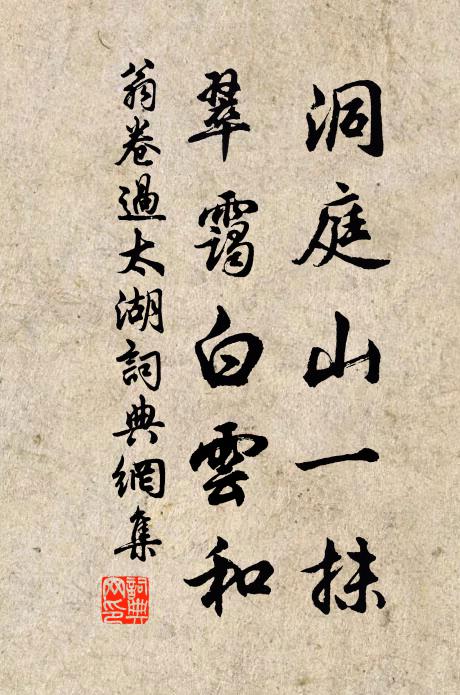 洞庭山一抹
翠靄白雲和
翁卷過太湖詞典網集
詞典網印